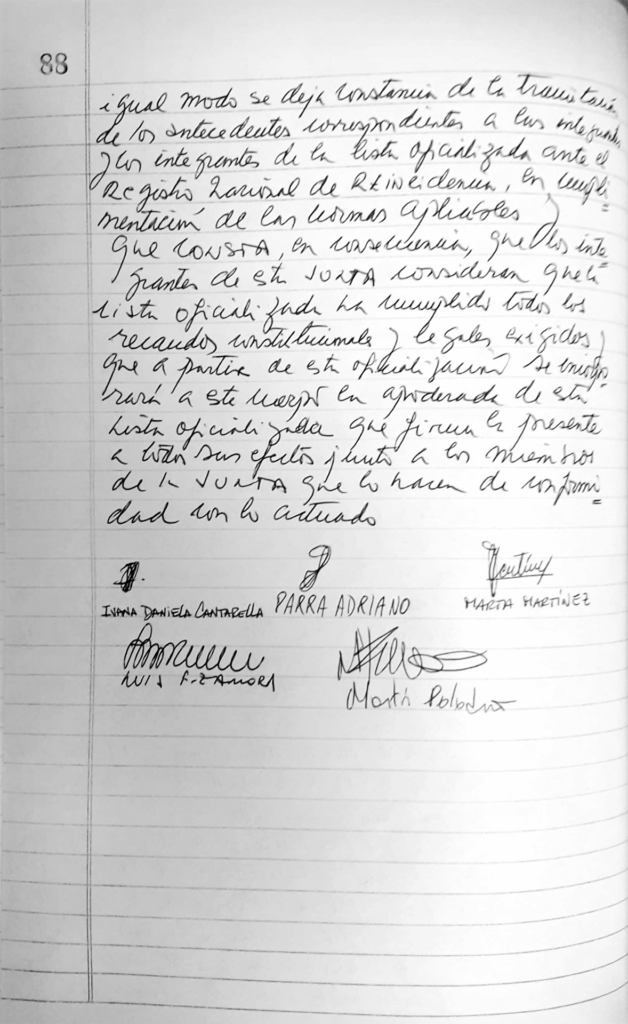 88
igual modo se deja constancia de la tramitación
de los antecedentes correspondientes a las
y los integrantes de la lista oficializada ante el
Registro Nacional de Reincidencia, en cumpli=
mentación de las normas aplicables y
que CONSTA, en consecuencia, que los inte=
grantes de esta JUNTA consideran que la
lista oficializada ha cumplido todos los
recaudos constitucionales y legales exigidos y
que a partir de esta oficialización se
rará a este cuerpo la apoderada de esta
lista oficializada que firma la presente
a todos sus efectos junto a los miembros
de la JUNTA que lo hacen de conformi=
dad con lo actuado
IVANA DANIELA CANTARELLA PARRA ADRIANO MARTA MARTÍNEZ
LUIS F. ZAMORA
Martín